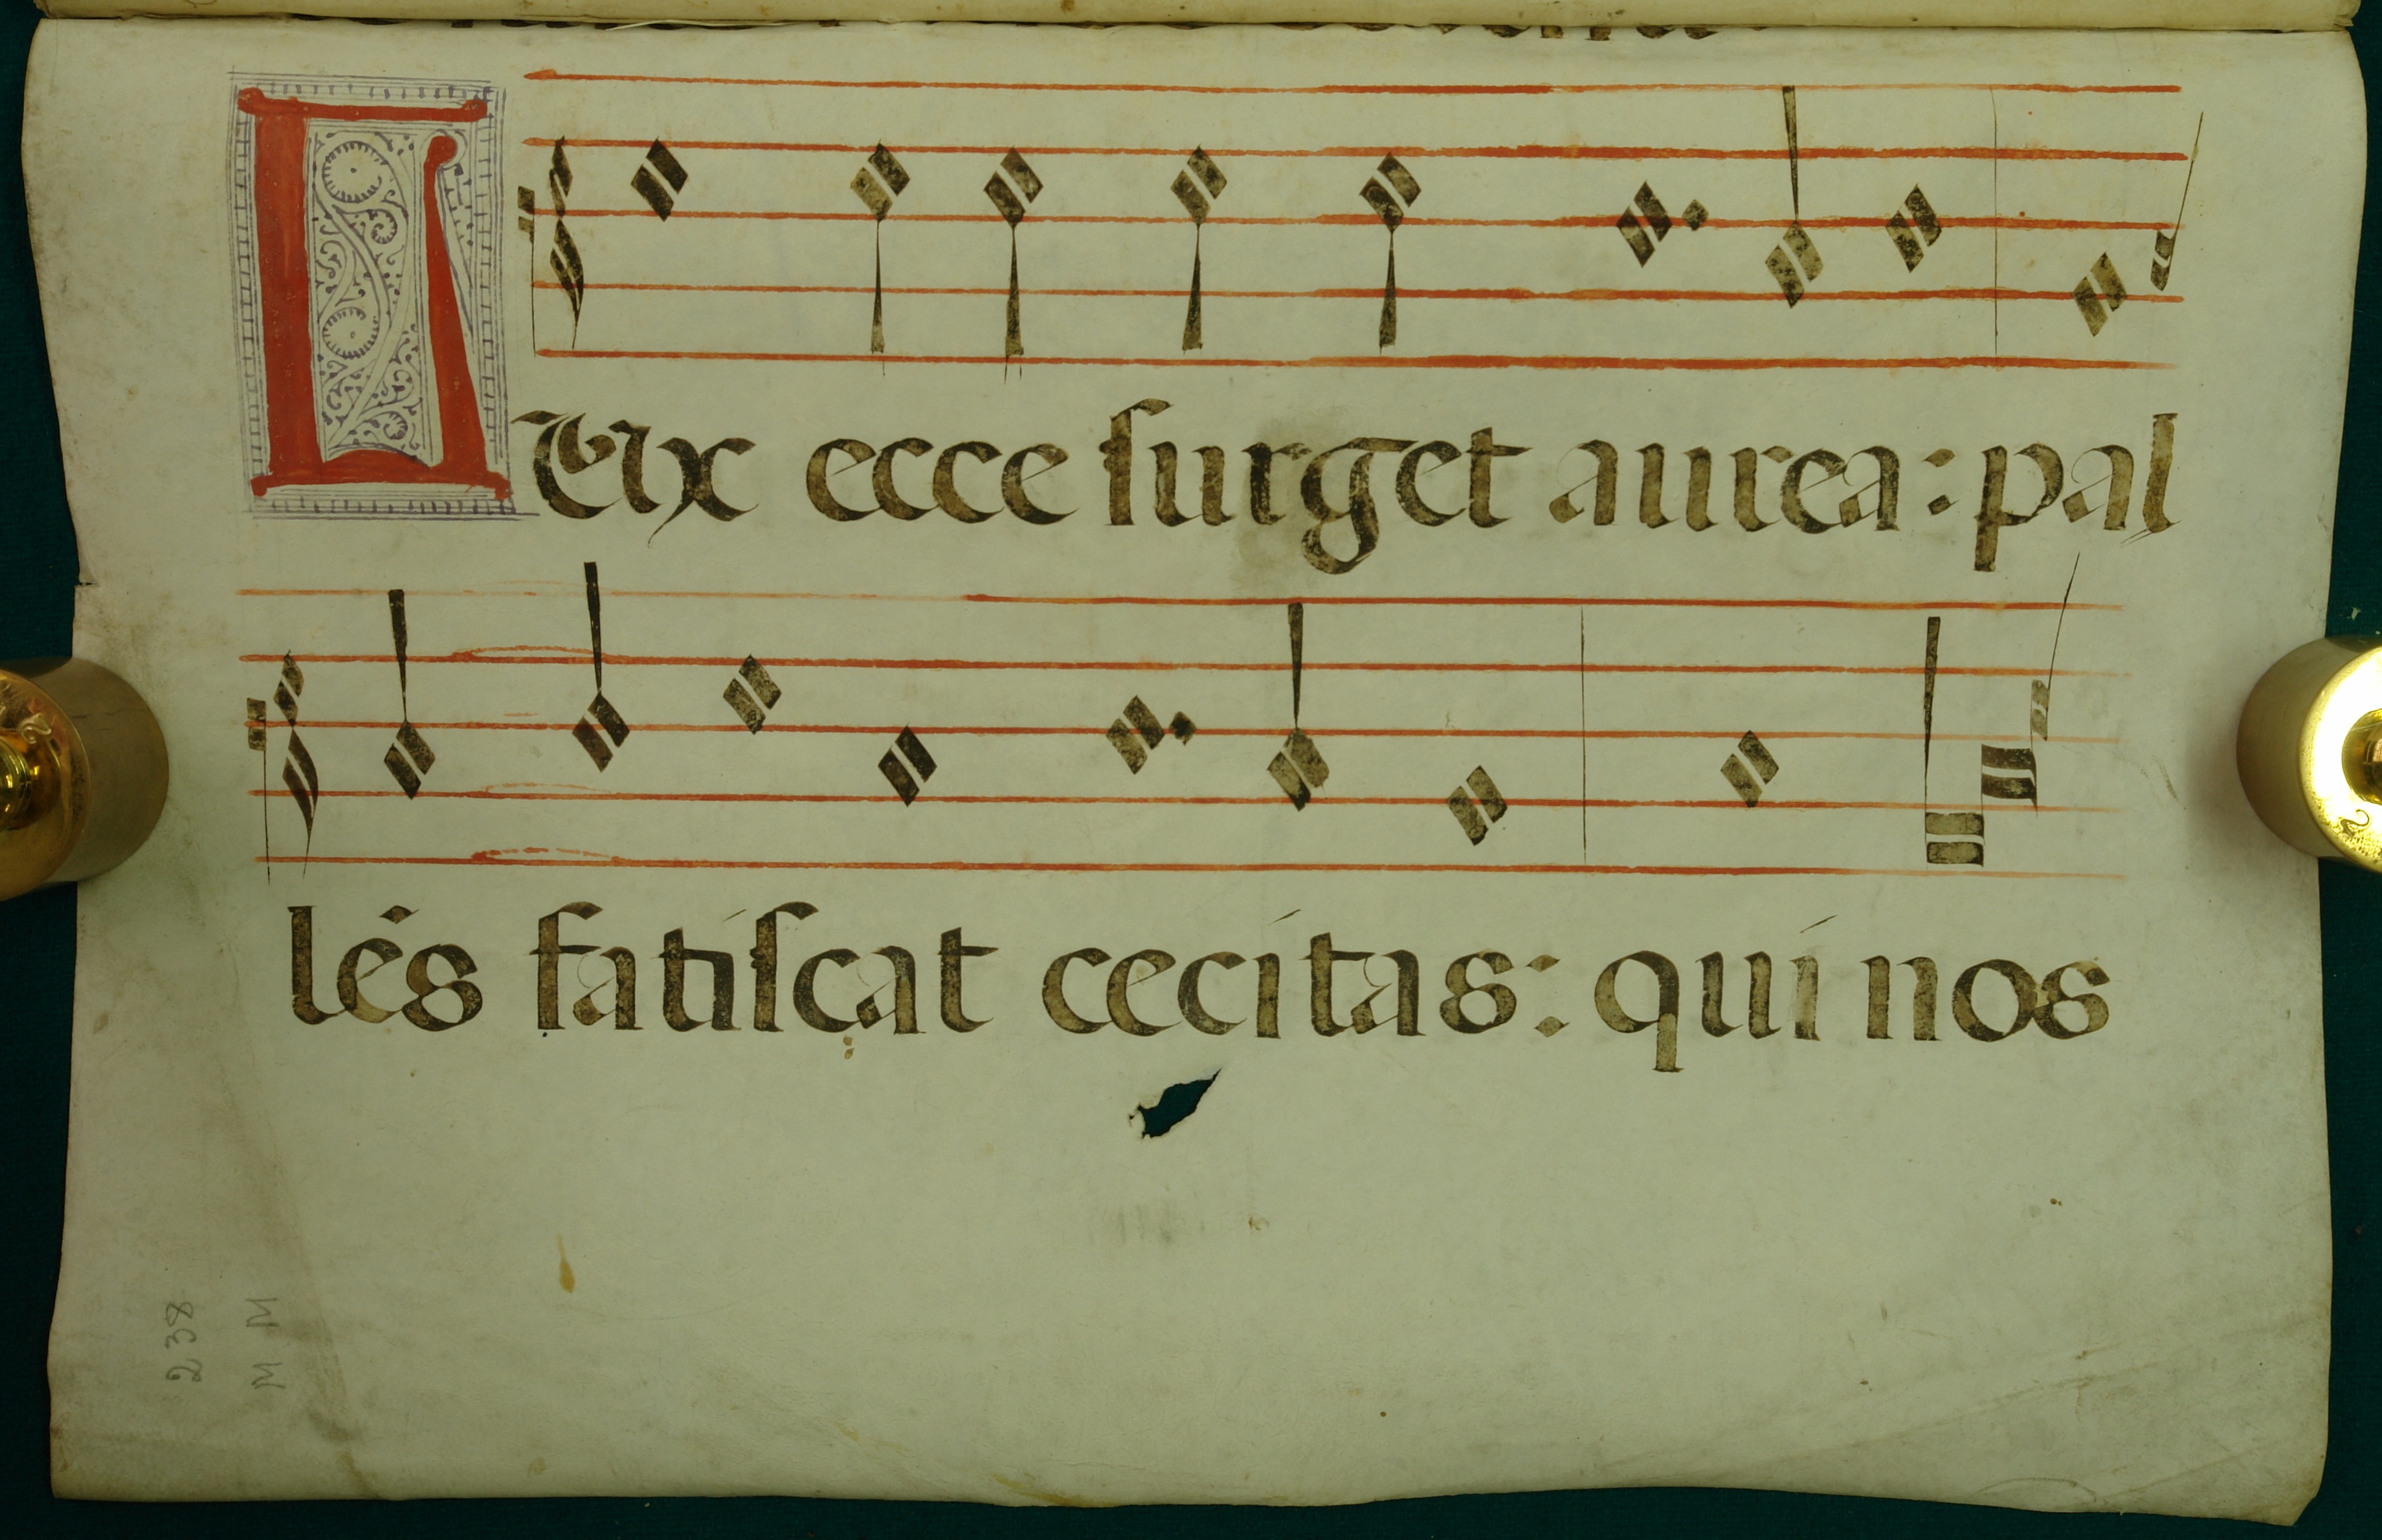 LUx ecce ſurget aurea: pal
lés fatiſcat cecitas: qui nos
238
M M